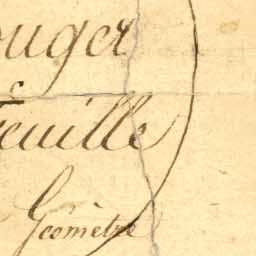 ouger
e
Feuille
Géomètre